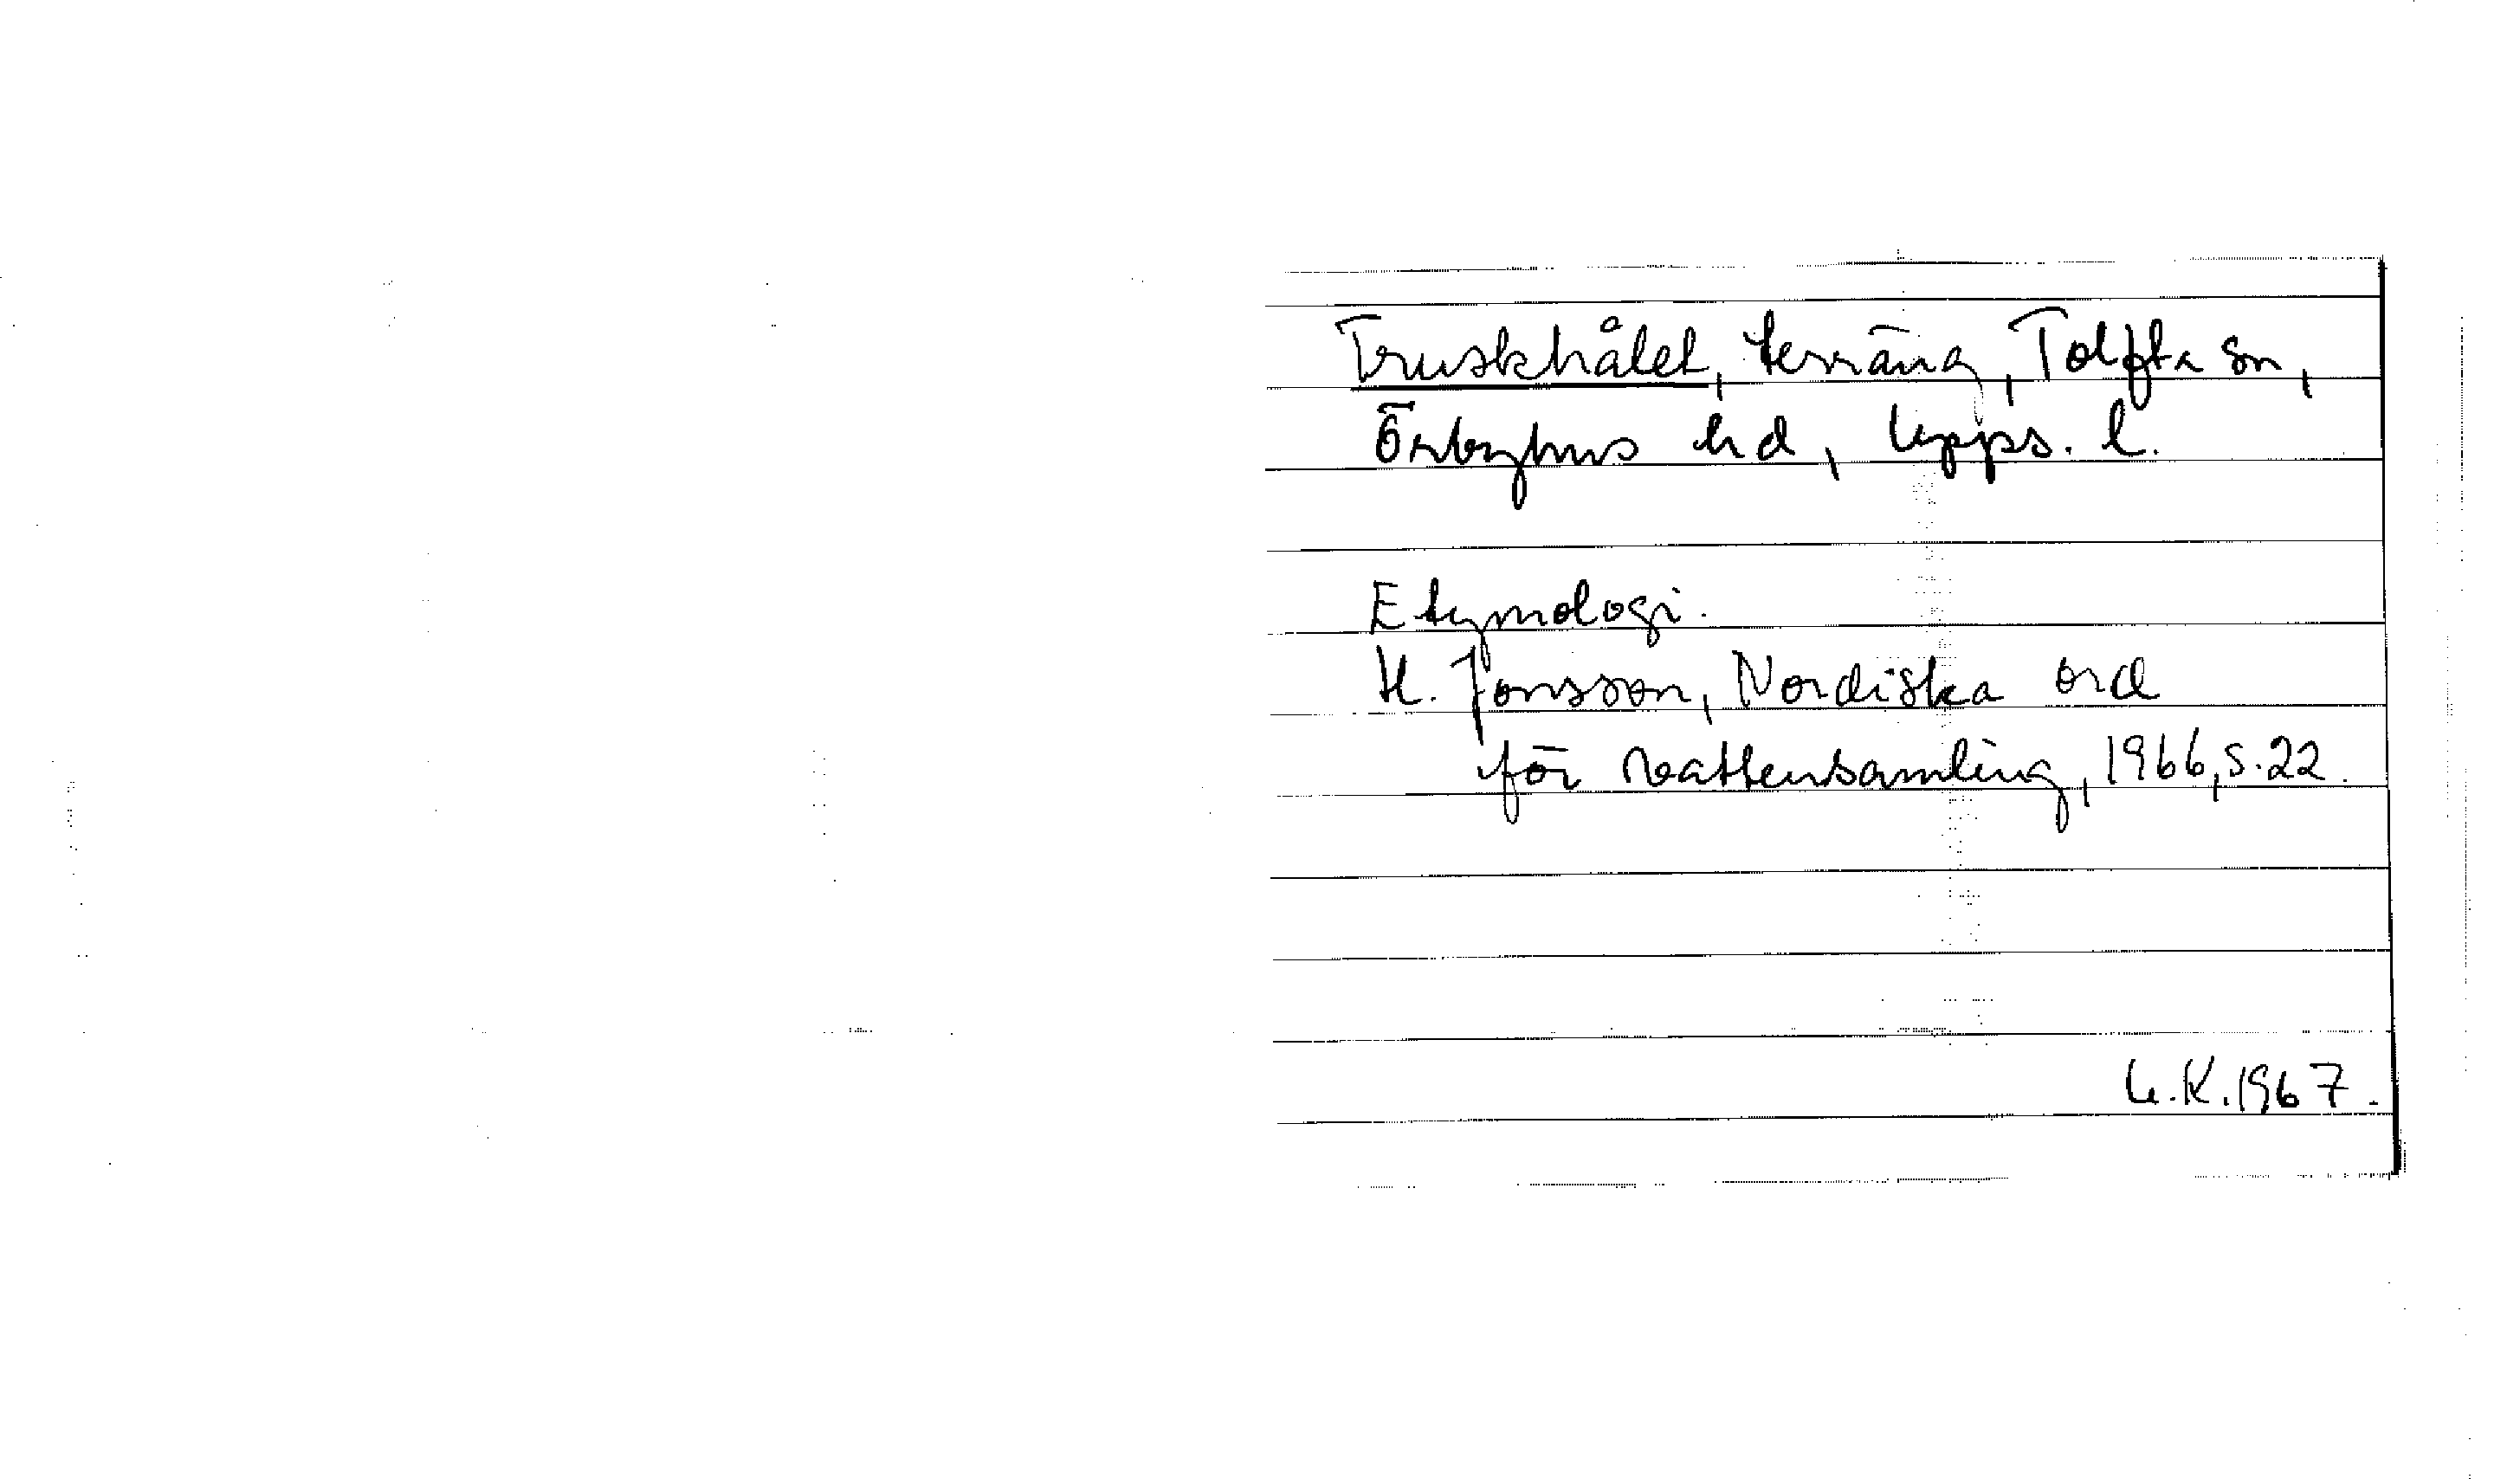 Truskhålet, terräng, Tolfta sn,
Örbyhus hd, Upps. l.
Etymologi.
H. Jonsson, Nordiska ord
för vattensamling, 1966, s. 22.
U.K. 1967.